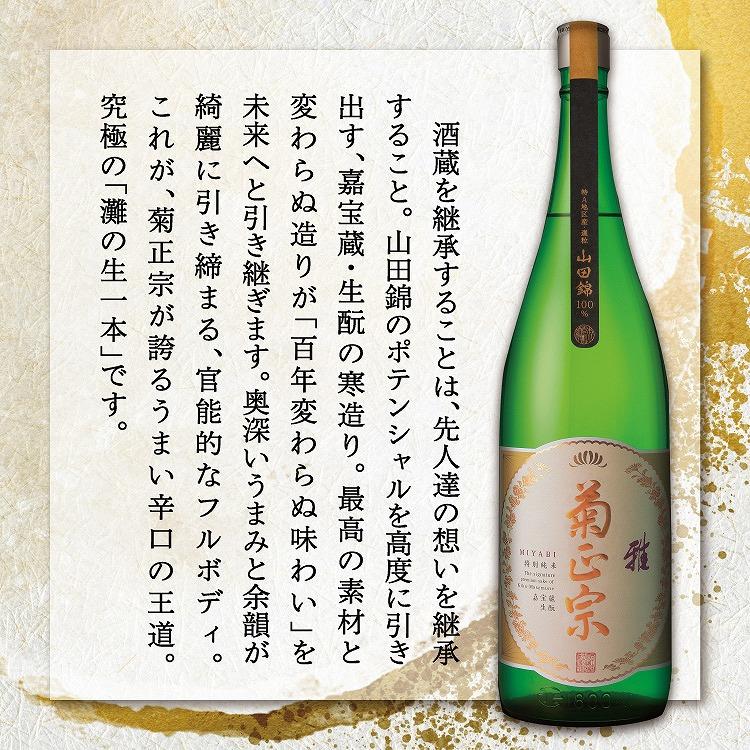 酒蔵を継承することは、先人達の想いを継承
すること。山田錦のポテンシャルを高度に引き
出す、嘉宝蔵・生酛の寒造り。最高の素材と
変わらぬ造りが「百年変わらぬ味わい」を
未来へと引き継ぎます。奥深いうまみと余韻が
綺麗に引き締まる、官能的なフルボディ。
これが、菊正宗が誇るうまい辛口の王道。
究極の「灘の生一本」です。
特A地区産・選粒
山田錦
100%
雅
菊正宗
MIYABI
特別純米
The signature
premium sake of
Kiku-Masamune
嘉宝蔵
生酛
1800